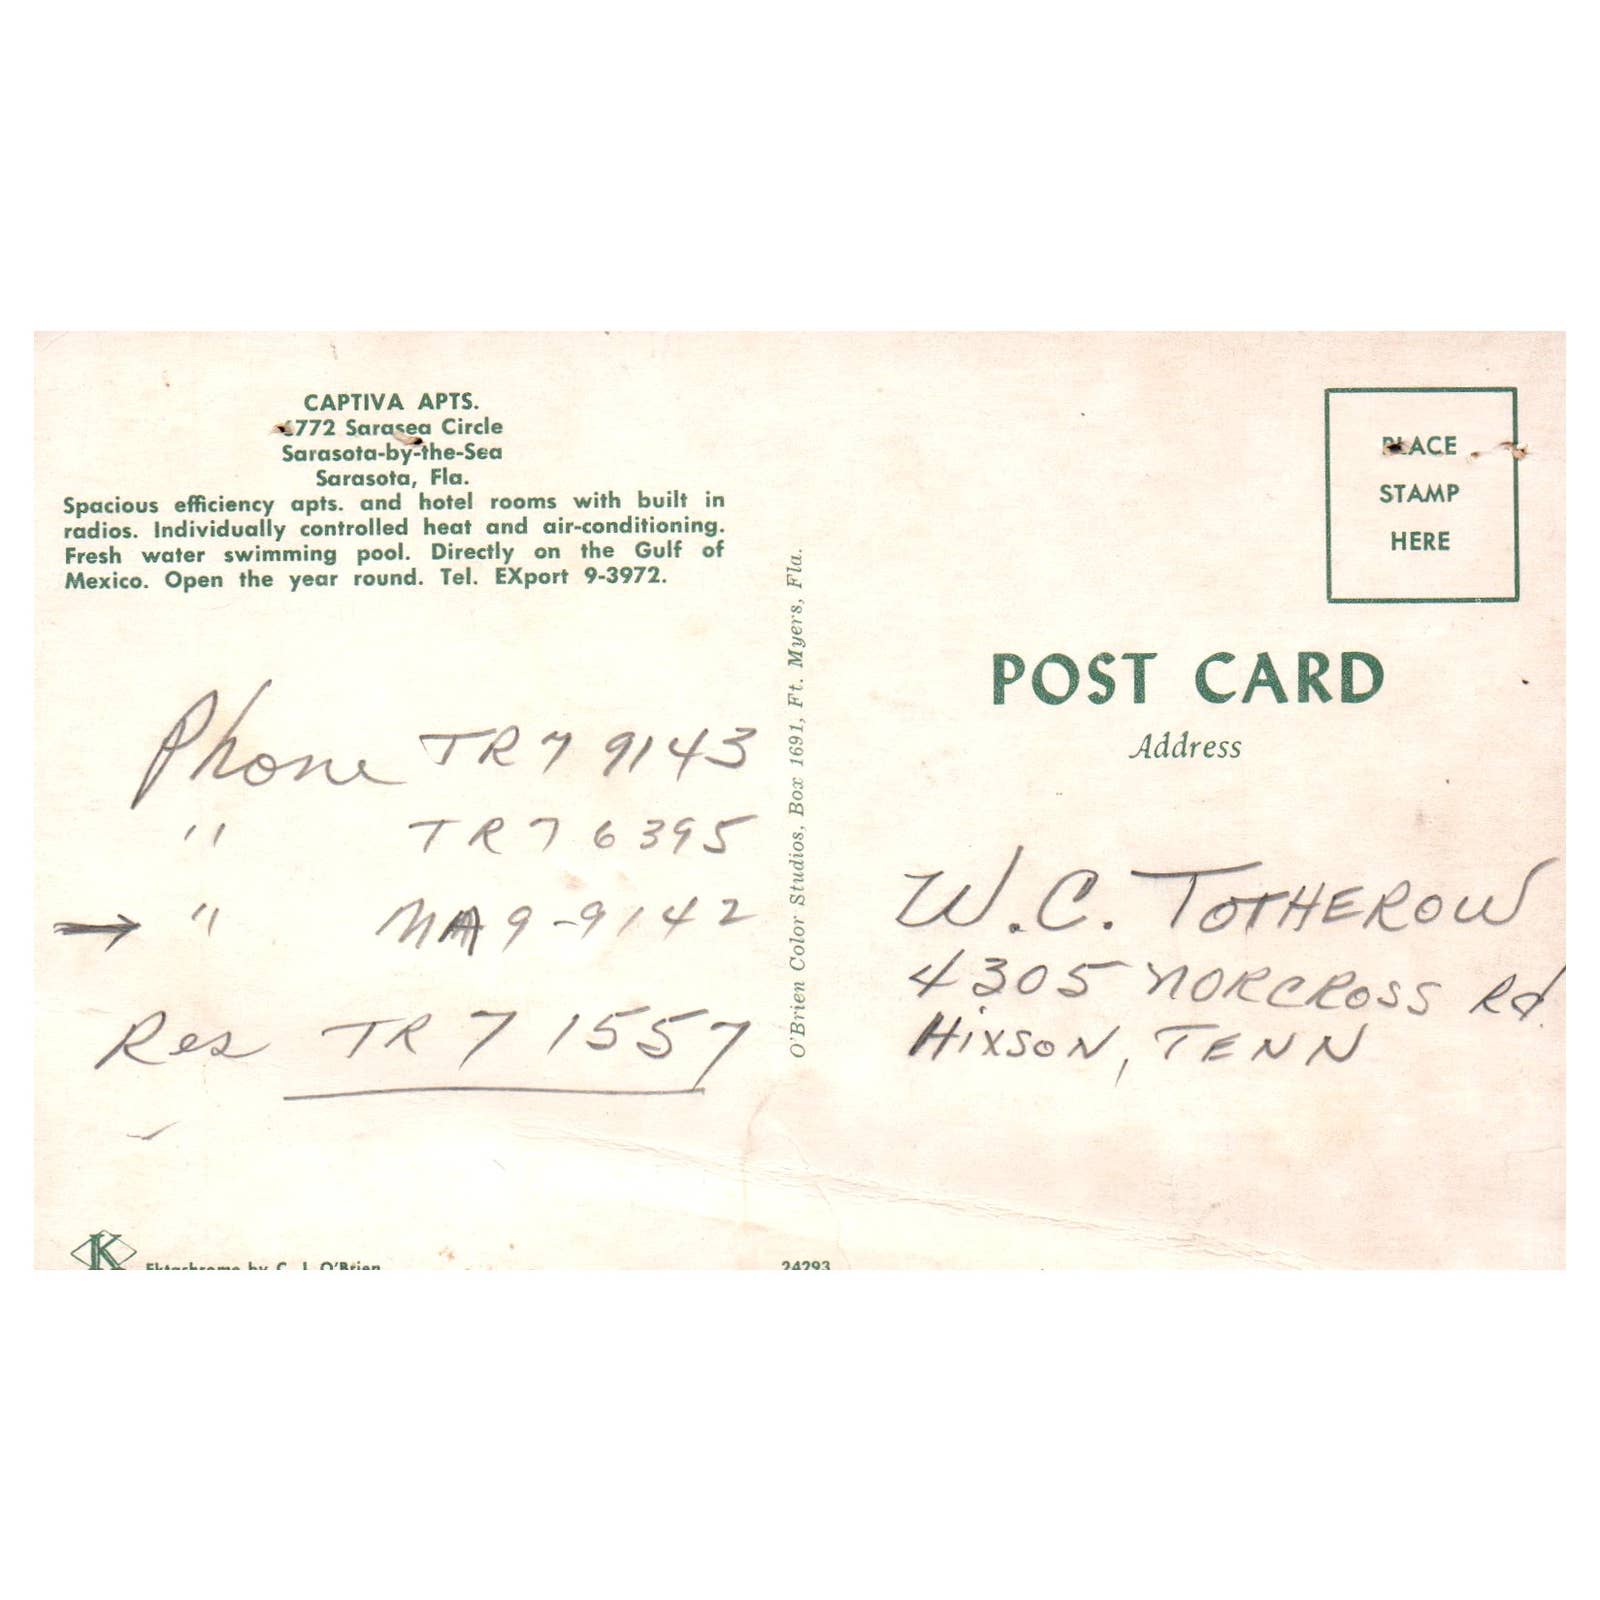 CAPTIVA APTS.
6772 Sarasea Circle
Sarasota-by-the-Sea
Sarasota, Fla.
Spacious efficiency apts. and hotel rooms with built in
radios. Individually controlled heat and air-conditioning.
Fresh water swimming pool. Directly on the Gulf of
Mexico. Open the year round. Tel. EXport 9-3972.
Phone TR7 9143
" TR7 6395
→ " MA9-9142
Res TR7 1557
K
Ektachrome by C. J. O'Brien
24293
O'Brien Color Studios, Box 1691, Ft. Myers, Fla.
PLACE
STAMP
HERE
POST CARD
Address
W.C. TOTHEROW
4305 NORCROSS Rd.
HiXSON, TENN